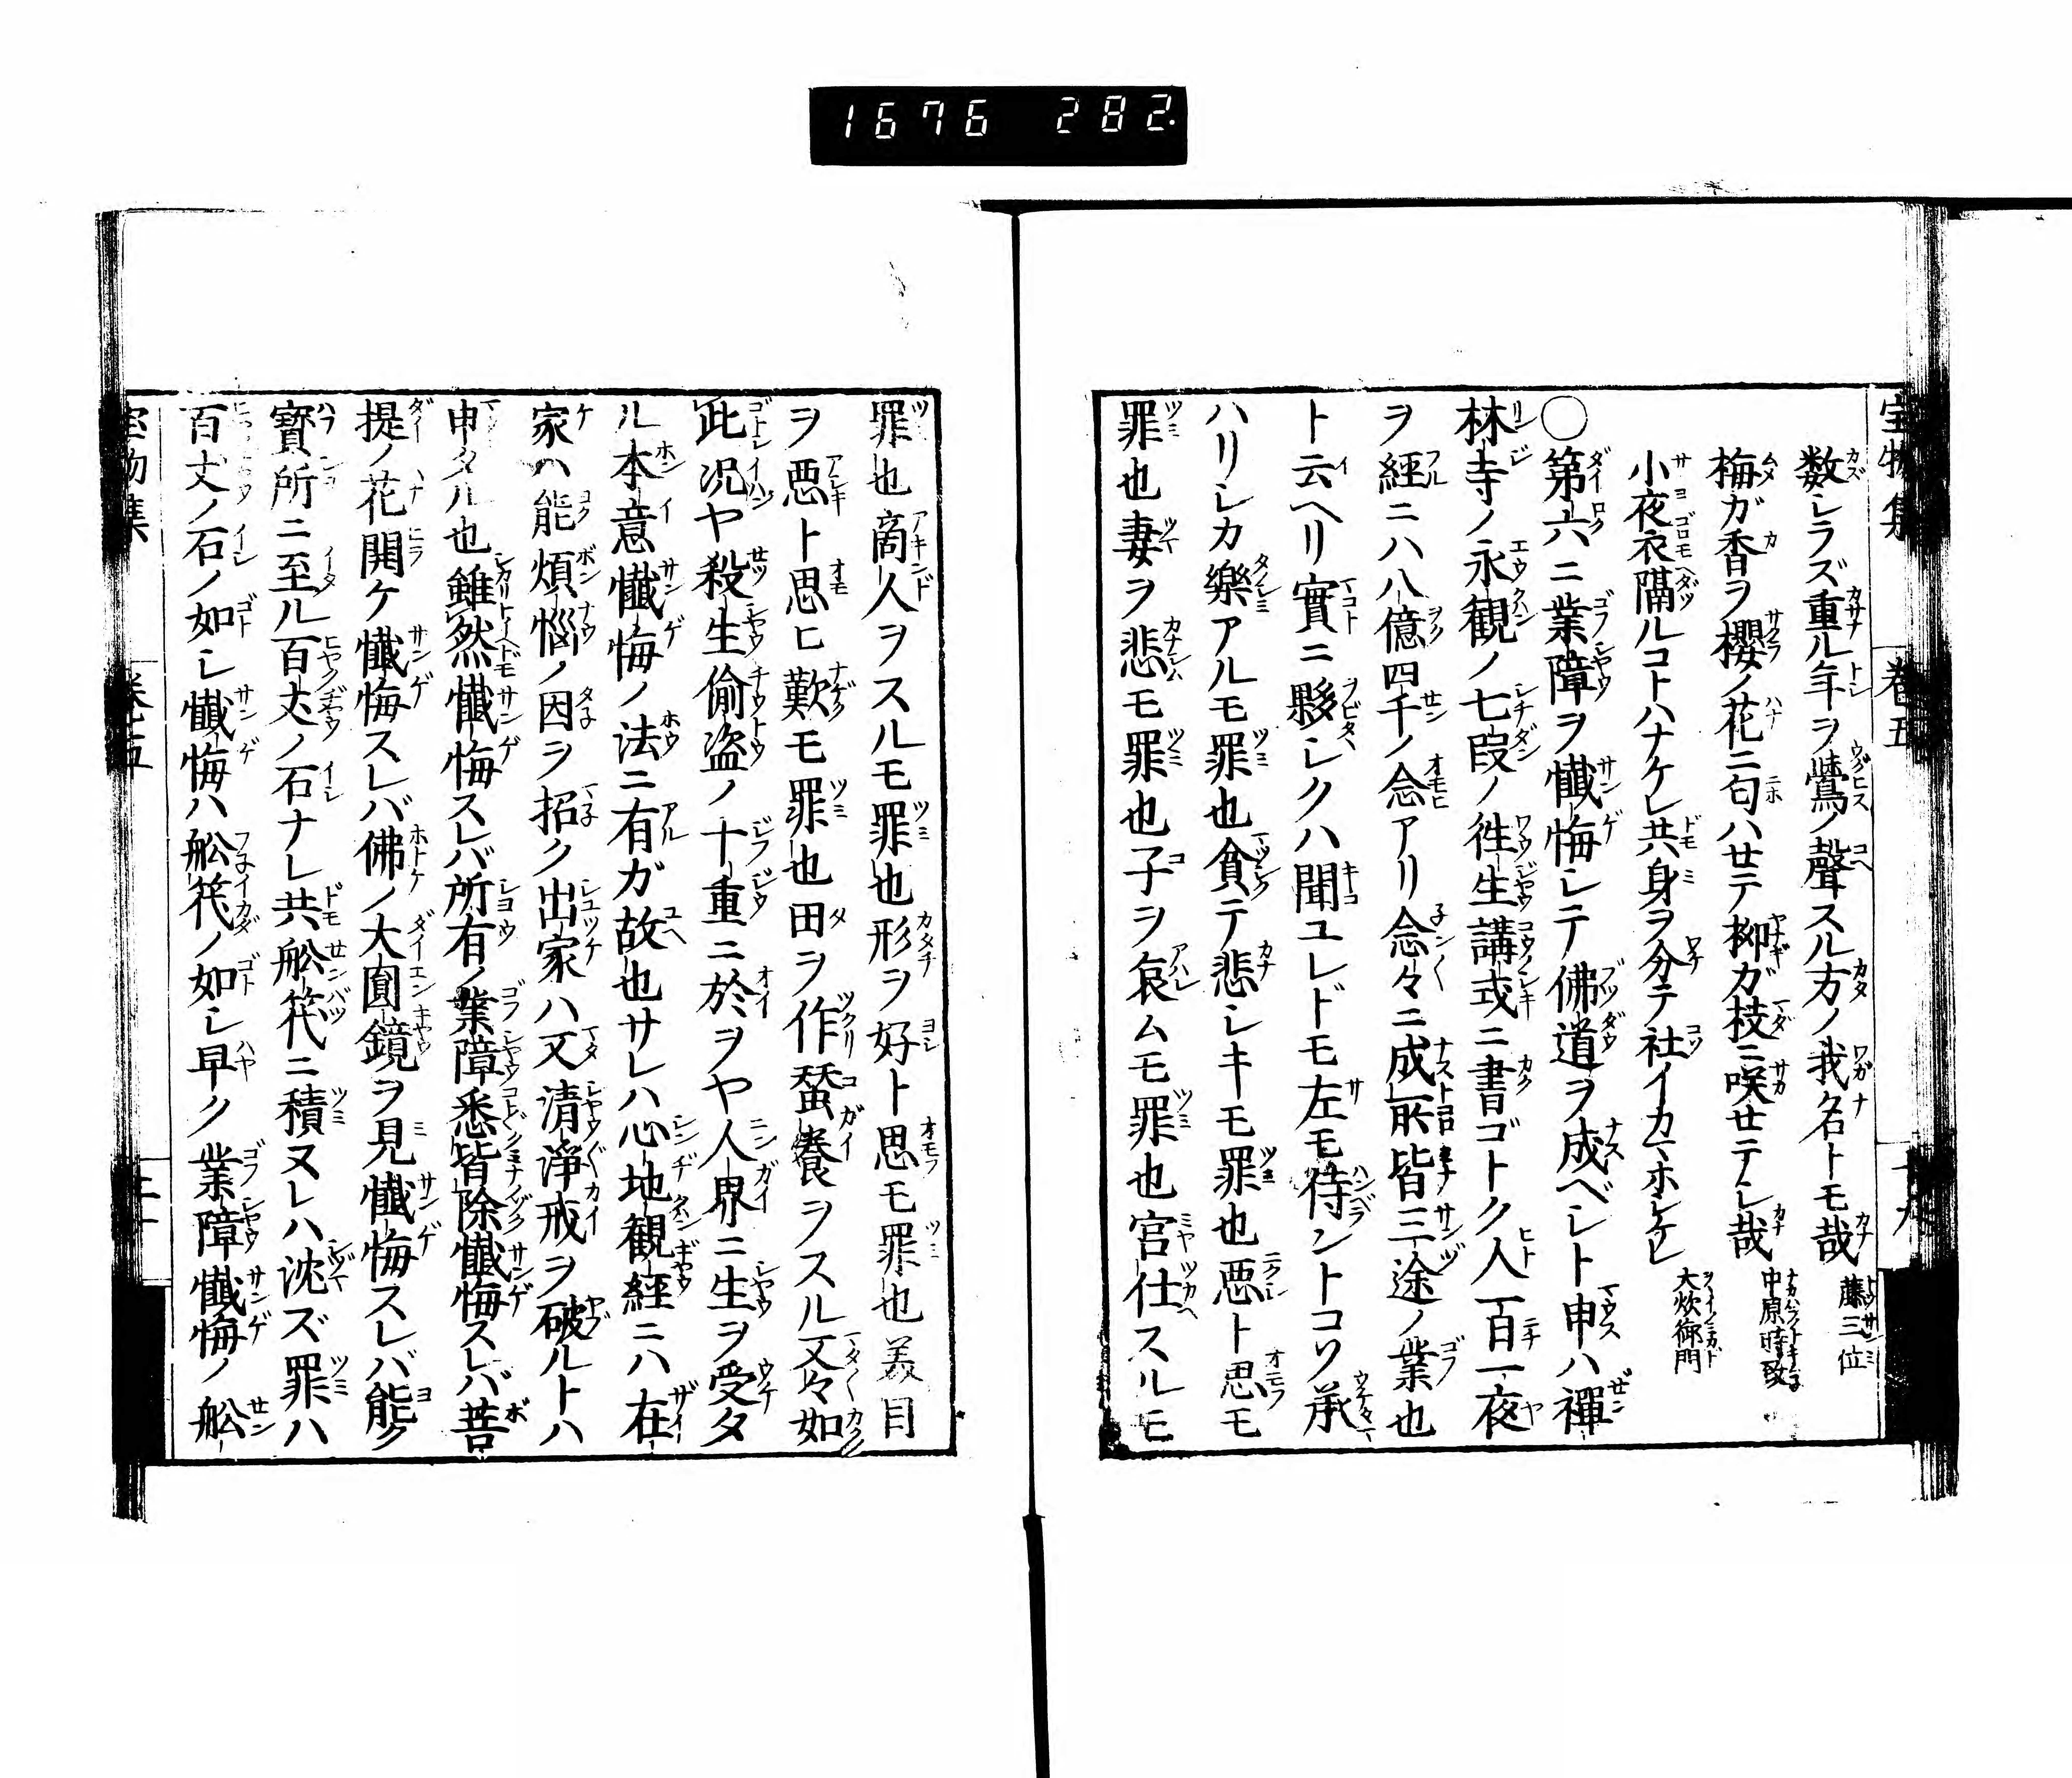 1676 282
宝物集 巻五
数シラズ重ル年ヲ鶯ノ聲スル方ノ我名トモ哉 藤三位
梅ガ香ヲ櫻ノ花ニ匂ハセテ柳ガ枝ニ咲セテシ哉 中原時致
小夜衣隔ルコトハナケレ共身ヲ分テ社イカマホシケレ 大炊御門
〇第六ニ業障ヲ懺悔シテ佛道ヲ成ベシト申ハ禪
林寺ノ永観ノ七段ノ徃生講式ニ書ゴトク人一百一夜
ヲ經ニハ八億四千ノ念アリ念々ニ成所皆三途ノ業也
ト云ヘリ實ニ夥シクハ聞ユレドモ左モ侍ントコソ承
ハリシカ樂アルモ罪也貪テ悲シキモ罪也悪ト思モ
罪也妻ヲ悲モ罪也子ヲ哀ムモ罪也宮仕スルモ
罪也商人ヲスルモ罪也形ヲ好ト思モ罪也美目
ヲ悪ト思ヒ歎モ罪也田ヲ作蚕養ヲスル又々如
此况ヤ殺生偷盗ノ十重ニ於ヲヤ人界ニ生ヲ受タ
ル本意懺悔ノ法ニ有ガ故也サレハ心地観經ニハ在
家ハ能煩惱ノ因ヲ招ク出家ハ又清淨戒ヲ破ルトハ
申タル也雖然懺悔スレバ所有ノ業障悉皆除懺悔スレバ菩
提ノ花開ケ懺悔スレバ佛ノ大圓鏡ヲ見懺悔スレバ能ク
寳所ニ至ル百丈ノ石ナレ共舩筏ニ積ヌレハ沈ズ罪ハ
百丈ノ石ノ如シ懺悔ハ舩筏ノ如シ早ク業障懺悔ノ舩
宝物集 巻五